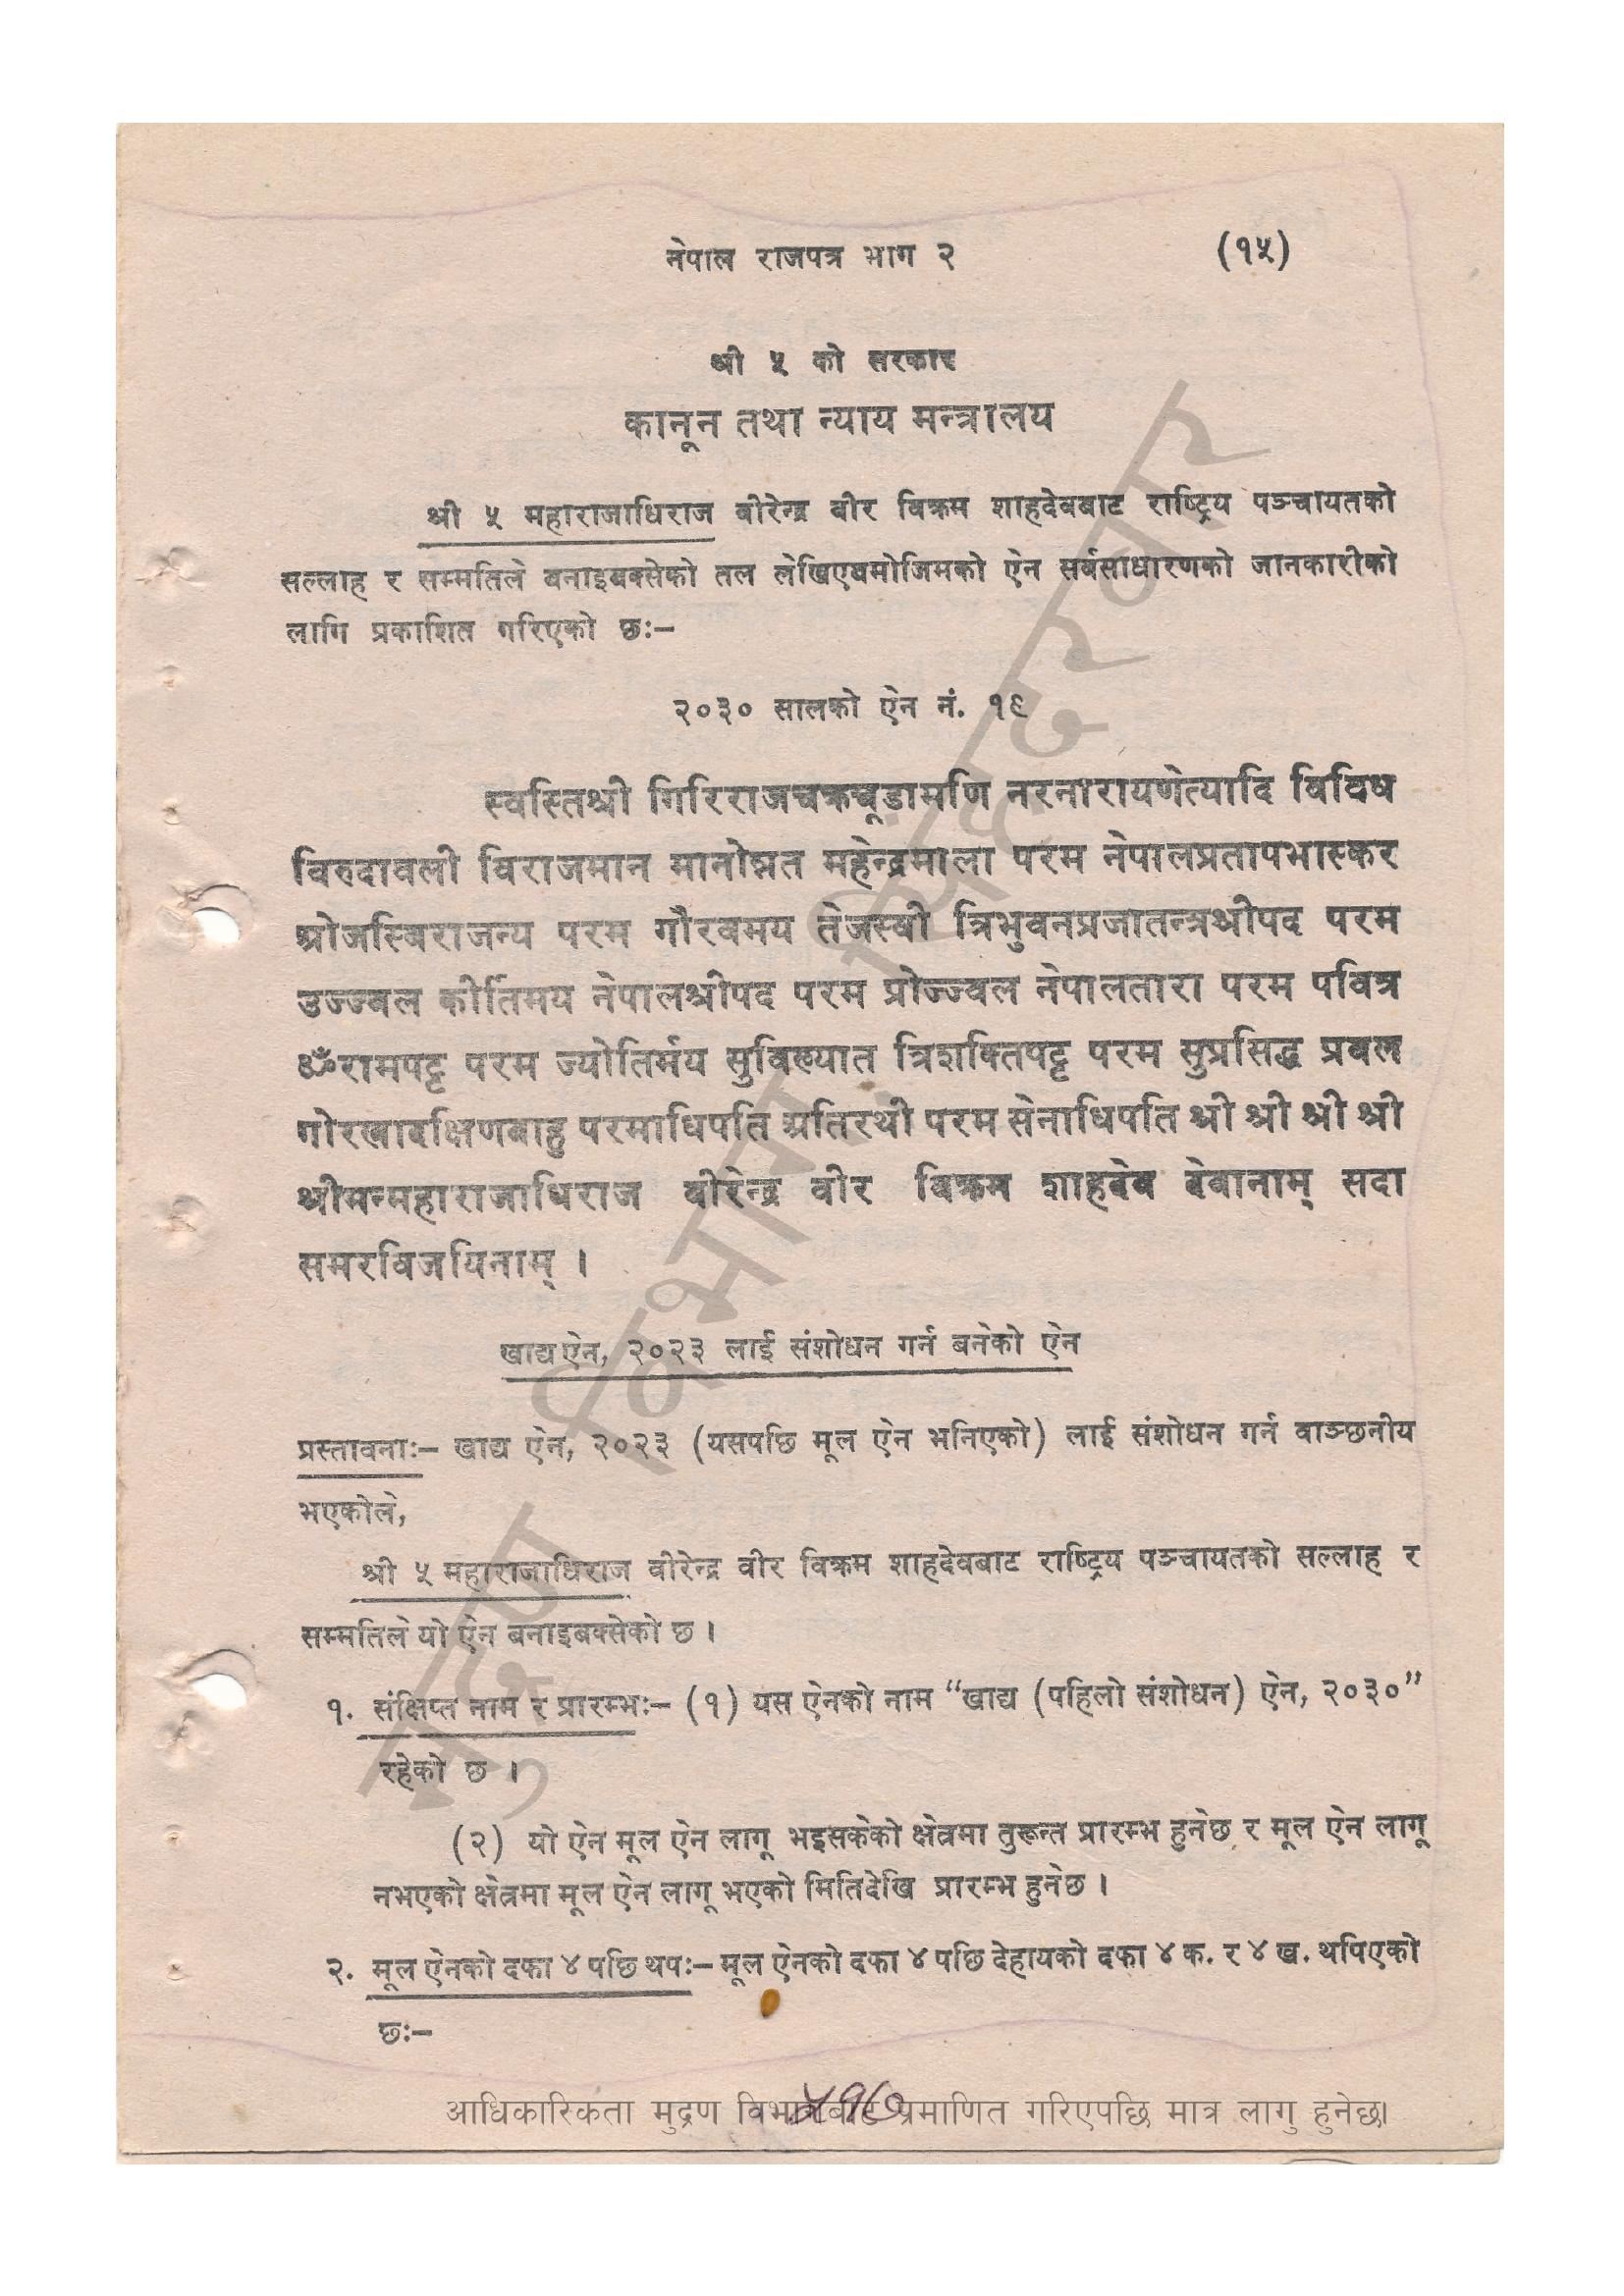 नेपाल राजपत्र भाग २ (१५)
श्री ५ को सरकार
कानून तथा न्याय मन्त्रालय
श्री ५ महाराजाधिराज वीरेन्द्र वीर विक्रम शाहदेवबाट राष्ट्रिय पञ्चायतको
सल्लाह र सम्मतिले बनाइबक्सेको तल लेखिएबमोजिमको ऐन सर्वसाधारणको जानकारीको
लागि प्रकाशित गरिएको छः–
२०३० सालको ऐन नं. १९
स्वस्तिश्री गिरिराजचक्रचूडामणि नरनारायणेत्यादि विविध
विरुदावली विराजमान मानोन्नत महेन्द्रमाला परम नेपालप्रतापभास्कर
ओजस्विराजन्य परम गौरवमय तेजस्वी त्रिभुवनप्रजातन्त्रश्रीपद परम
उज्ज्वल कीर्तिमय नेपालश्रीपद परम प्रोज्ज्वल नेपालतारा परम पवित्र
ॐरामपट्ट परम ज्योतिर्मय सुविख्यात त्रिशक्तिपट्ट परम सुप्रसिद्ध प्रबल
गोरखादक्षिणबाहु परमाधिपति अतिरथी परम सेनाधिपति श्री श्री श्री श्री
श्रीमन्महाराजाधिराज वीरेन्द्र वीर विक्रम शाहदेव देवानाम् सदा
समरविजयिनाम् ।
खाद्य ऐन, २०२३ लाई संशोधन गर्न बनेको ऐन
प्रस्तावनाः– खाद्य ऐन, २०२३ (यसपछि मूल ऐन भनिएको) लाई संशोधन गर्न वाञ्छनीय
भएकोले,
श्री ५ महाराजाधिराज वीरेन्द्र वीर विक्रम शाहदेवबाट राष्ट्रिय पञ्चायतको सल्लाह र
सम्मतिले यो ऐन बनाइबक्सेको छ ।
१. संक्षिप्त नाम र प्रारम्भः– (१) यस ऐनको नाम “खाद्य (पहिलो संशोधन) ऐन, २०३०”
रहेको छ ।
(२) यो ऐन मूल ऐन लागू भइसकेको क्षेत्रमा तुरून्त प्रारम्भ हुनेछ र मूल ऐन लागू
नभएको क्षेत्रमा मूल ऐन लागू भएको मितिदेखि प्रारम्भ हुनेछ ।
२. मूल ऐनको दफा ४ पछि थपः– मूल ऐनको दफा ४ पछि देहायको दफा ४ क. र ४ ख. थपिएको
छः–
५१७
आधिकारिकता मुद्रण विभागबाट प्रमाणित गरिएपछि मात्र लागु हुनेछ।
मुद्रण विभाग, सिंहदरबार